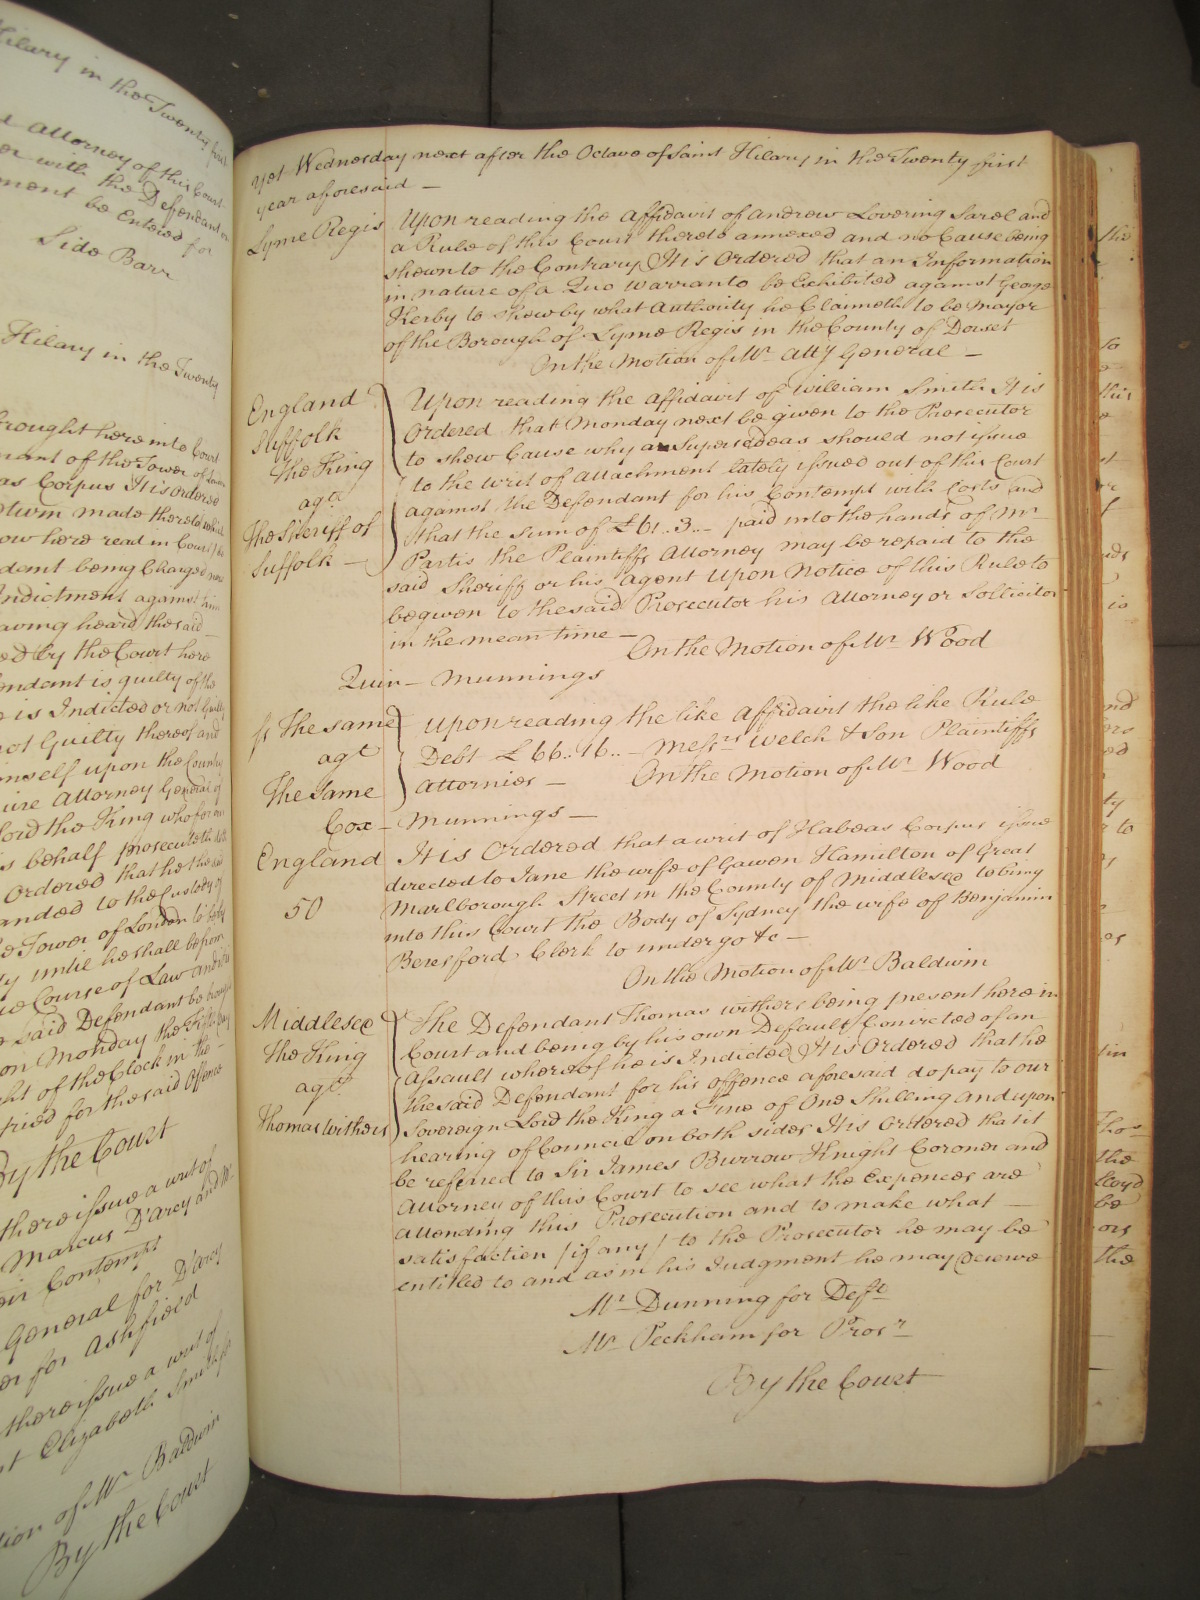 Hilary in the Twenty first
attorney of this Court
with the Defendant
ment be Entered for
Side Barr
Hilary in the Twenty
brought here into Court
of the Tower of London
as Corpus It is Ordered
made thereto
now here read in Court
dant being Charged
Indictment against him
aving heard the said
ed by the Court here
endant is guilty of the
is Indicted or not Guilty
not Guilty thereof and
imself upon the Country
uire Attorney General of
Lord the King who for
s behalf prosecuteth
Ordered that he the said
anded to the Custody of
Tower of London
until he shall be from
Course of Law
said Defendant be brought
on Monday the
ht of the Clock in the
tried for the said Offence
By the Court
there issue a writ of
Marcus D'arcy and Mr
eir Contempt
General for D'arcy
for Ashfield
there issue a writ of
st Elizabeth
tion of Mr Baldwin
By the Court
yet Wednesday next after the Octave of Saint Hilary in the Twenty first
year aforesaid —
Lyme Regis Upon reading the affidavit of Andrew Lovering Sarel and
a Rule of this Court thereto annexed and no Cause being
shewn to the Contrary It is Ordered that an Information
in nature of a Quo Warranto be Exhibited against George
Kerby to shew by what Authority he Claimeth to be Mayor
of the Borough of Lyme Regis in the County of Dorset
On the Motion of Mr Atty General —
England Upon reading the affidavit of William Smith It is
Suffolk Ordered that Monday next be given to the Prosecutor
The King to shew Cause why a Supersedeas should not issue
agt to the writ of Attachment lately issued out of this Court
The Sheriff of against the Defendant for his Contempt with Costs and
Suffolk — that the Sum of £61..3..— paid into the hands of Mr
Partis the Plaintiffs Attorney may be repaid to the
said Sheriff or his Agent Upon Notice of this Rule to
be given to the said Prosecutor his Attorney or Sollicitor
in the mean time — On the Motion of Mr Wood
Quin — Munnings
The same Upon reading the like Affidavit the like Rule
agt Debt £66..16..— Messrs Welch & Son Plaintiffs
The Same Attornies — On the Motion of Mr Wood
Cox — Munnings —
England It is Ordered that a writ of Habeas Corpus issue
directed to Jane the wife of Gawen Hamilton of Great
50 Marlborough Street in the County of Middlesex to bring
into this Court the Body of Sydney the wife of Benjamin
Beresford Clerk to undergo &c —
On the Motion of Mr Baldwin
Middlesex The Defendant Thomas Withers being present here in
The King Court and being by his own Default Convicted of an
agt Assault whereof he is Indicted It is Ordered that he
the said Defendant for his offence aforesaid do pay to our
Thomas Withers Sovereign Lord the King a Fine of One Shilling and upon
hearing of Council on both sides It is Ordered that it
be referred to Sir James Burrow Knight Coroner and
Attorney of this Court to see what the Expences are
attending this Prosecution and to make what —
satisfaction /if any/ to the Prosecutor he may be
entitled to and as in his Judgment he may deserve
Mr Dunning for Deft
Mr Peckham for Prosr
By the Court